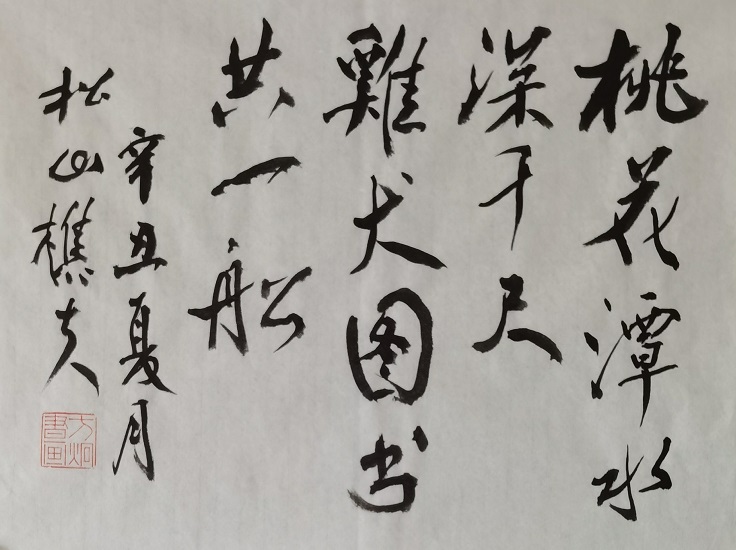 桃花潭水
深千尺
雞犬图书
共一船
辛丑夏月
松山樵夫
方炯
書画